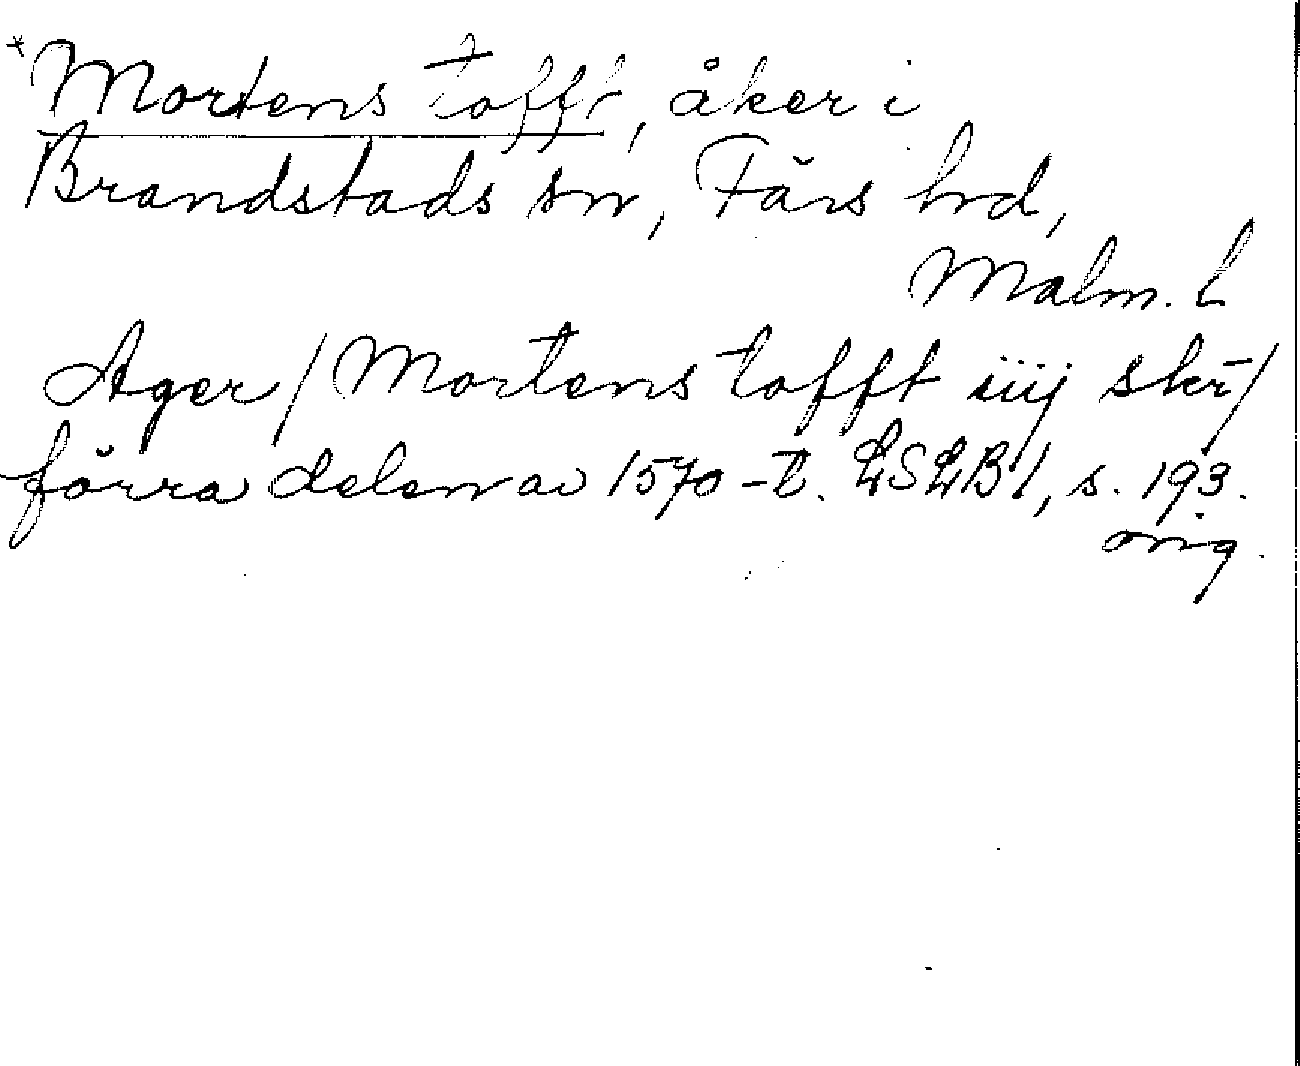 *Mortens tofft, åker i
Brandstads sn, Färs hd,
Malm. L
Ager / Mortens tofft iiij skr̄ /
förra delen av 1570-t. LSLB 1, s. 193.
orig.